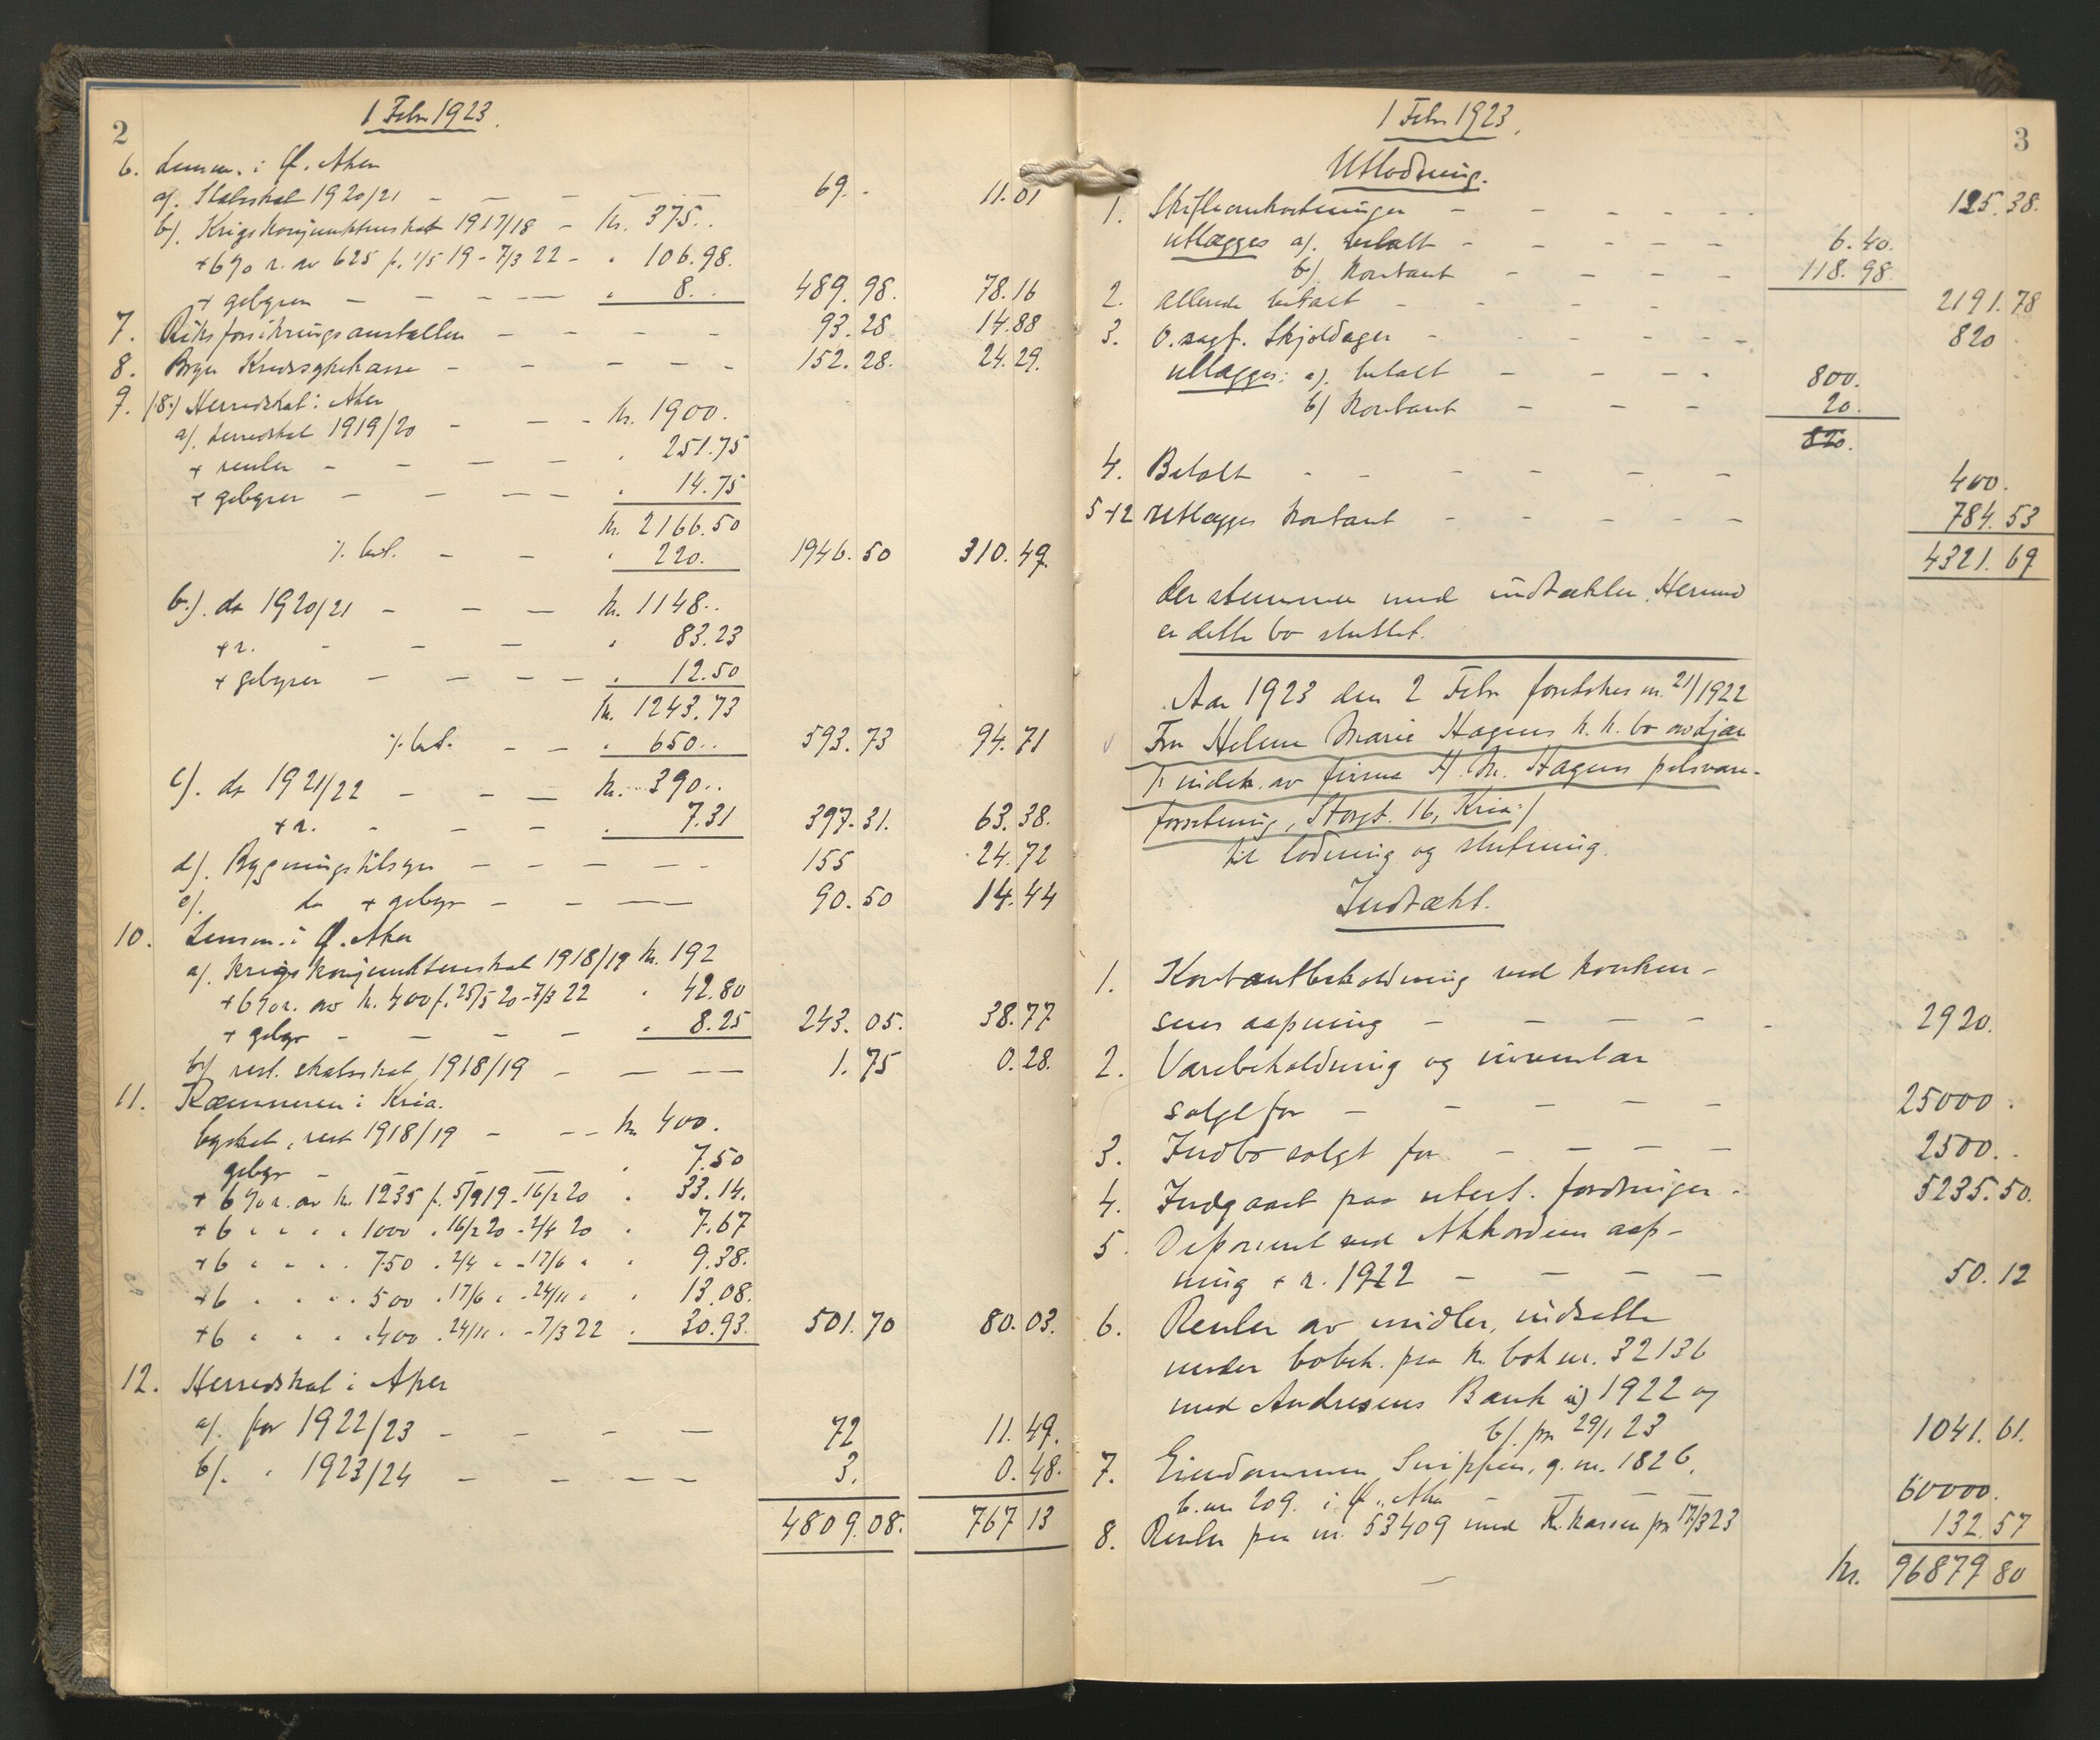 2
1 Febr 1923.
6. Lensm. i Ø. Aker
a/. Statsskat 1920/21 - - - - - 69.- 11.01
b/. Krigskonjunkturskat 1917/18 - kr. 375..
+ 6% r. av 625 f. 1/5 19 - 7/3 22 - " 106.98.
+ gebyrer - - - - " 8.. 489.98. 78.16
7. Riksforsikringsanstalten - - - - 93.28 14.88
8. Bryn Kredssykekasse - - - - - 152.28. 24.29.
9. /8./ Herredskat i Aker
a/. herredskat 1919/20 - - - kr. 1900.
+ renter - - - - " 251.75
+ gebyrer - - - - " 14.75
kr. 2166.50
% bet. - - " 220. 1946.50 310.49.
b./. do 1920/21 - - - kr. 1148..
+ r. - - - " 83.23
+ gebyrer - - - - " 12.50
kr. 1243.73
% bet. - - " 650.. 593.73 94.71
c/. do 1921/22 - - - kr. 390..
+ r. - - - " 7.31 397.31. 63.38.
d/. Bygningstilsyn - - - - - 155 24.72
e/. do + gebyr - - - 90.50 14.44
10. Lensm. i Ø. Aker
a/. krigskonjunkturskat 1918/19 kr. 192
+ 6% r. av kr. 400 f. 25/5 20 - 7/3 22 " 42.80
+ gebyr - - - - " 8.25 243.05. 38.77
b/ rest. statsskat 1918/19 - - - 1.75 0.28.
11. Kæmneren i Kria.
byskat, rest 1918/19 - - - kr. 400.
gebyr - - - - " 7.50
+ 6% r. av kr. 1235 f. 5/9 19 - 16/2 20 " 33.14.
+ 6 " " " " 1000 " 16/2 20 - 2/4 20 " 7.67
+ 6 " " " " 750 " 2/4 " - 17/6 " " 9.38.
+ 6 " " " " 500 " 17/6 " - 24/11 " " 13.08.
+ 6 " " " " 400 " 24/11 " - 7/3 22 " 30.93. 501.70 80.03.
12. Herredskat i Aker
a/. for 1922/23 - - - - 72 11.49.
b/. " 1923/24 - - - - 3. 0.48.
4809.08. 767 13
3
1 Febr 1923.
Utlodning.
1. Skifteomkostninger - - - - - 125.38.
utlægges a/. betalt - - - - - 6.40.
b/. kontant - - - - 118.98.
2. allerede betalt - - - - 2191.78
3. O.sagf. Skjoldager - - - - - 820
utlægges: a/. betalt - - - - 800.
b/ kontant - - - 20.
820.
4. Betalt - - - - - - 400.
5-12 utlægges kontant - - - - - 784.53
4321.69
der stemmer med indtækter. Hermed
er dette bo sluttet.
Aar 1923 den 2 Febr foretokes nr. 21/1922
Fru Helene Marie Hagens k. k. bo av Ljan
/: indeh. av firma H. M. Hagens pelsvare-
forretning, Storgt. 16, Kria:/
til lodning og slutning.
Indtækt.
1. Kontantbeholdning ved konkur-
sens aapning - - - - - 2920.
2. Varebeholdning og inventar
solgt for - - - - - 25000.
3. Indbo solgt for - - - - 2500..
4. Indgaaet paa utest. fordringer - 5235.50.
5. Deponert ved Akkordens aap-
ning + r. 1922 - - - - 50.12
6. Renter av midler, indsatte
under bobeh. paa k. bok nr. 32136
med Andresens Bank a) 1922 og
b/. pr 29/1 23 1041.61.
7. Eiendommen Snippen, g. nr. 182 6,
b. nr. 209. i Ø. Aker - - - 60000.
8. Renter paa nr. 53409 med Kr. kassen pr 17/3 23 132.57
kr. 96879 80